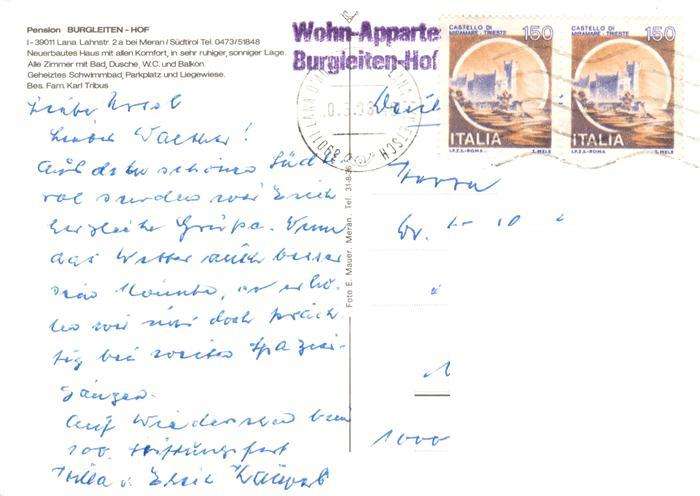 Pension BURGLEITEN - HOF
I - 39011 Lana. Lahnstr. 2 a bei Meran / Südtirol Tel. 0473/51848
Neuerbautes Haus mit allen Komfort, in sehr ruhiger, sonniger Lage.
Alle Zimmer mit Bad, Dusche, W.C. und Balkon
Geheiztes Schwimmbad, Parkplatz und Liegewiese.
Bes. Fam. Karl Tribus
Wohn-Apparte
Burgleiten-Hof
CASTELLO DI MIRAMARE - TRIESTE 150
ITALIA
I.P.Z.S.-ROMA T. MELE
CASTELLO DI MIRAMARE - TRIESTE 150
ITALIA
I.P.Z.S.-ROMA T. MELE
Lieber
Lieber Walther!
Aus dem schönen Südti-
rol senden wir Euch
herzliche Grüße. Wenn
das Wetter auch besser
sein könnte, so erho-
len wir uns doch präch-
tig bei weiten Spazier-
gängen.
Auf Wiedersehen beim
100. Stiftungsfest
Foto E. Mauer, Meran, Tel.
Herrn
Dr.
1000